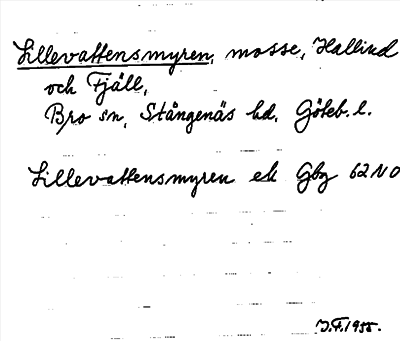 Lillevattensmyren, mosse, Hallind
och Fjäll,
Bro sn, Stångenäs hd, Göteb. l.
Lillevattensmyren ek Gbg 62 NO
J.F. 1955.